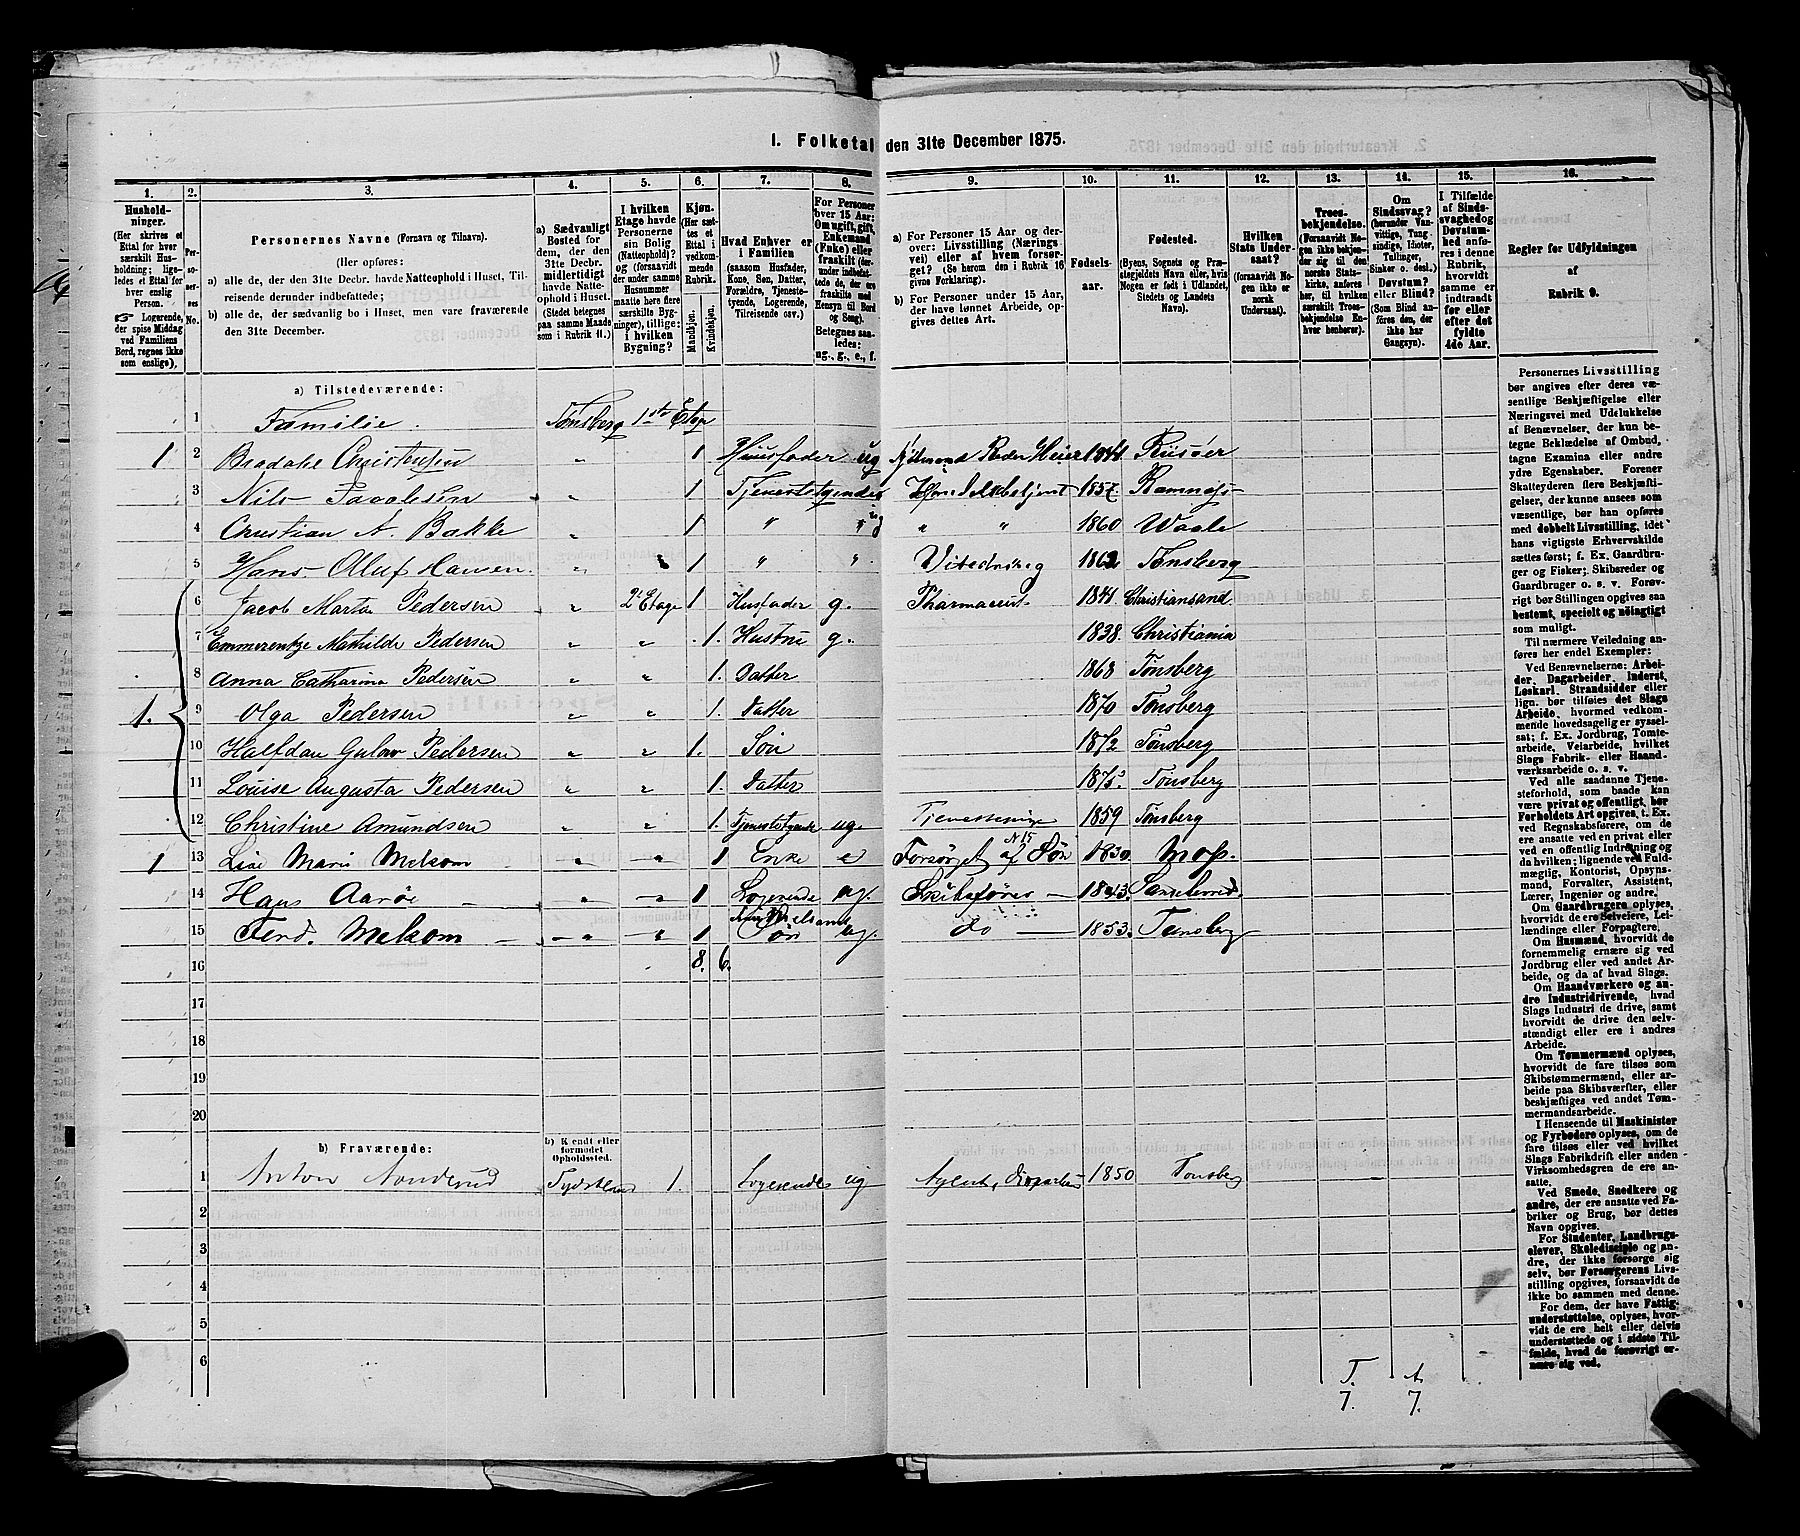 1. Folketal den 31te December 1875.
1. 2. 3. 4. 5. 6. 7. 8. 9. 10. 11. 12. 13. 14. 15. 16.
Husholdninger.
(Her skrives et
Ettal for hver
særskilt Husholdning; ligeledes et Ettal for
hver enslig
Person.
☞ Logerende,
der spise Middag
ved Familiens
Bord, regnes ikke
som enslige).
Personernes No.
Personernes Navne (Fornavn og Tilnavn).
(Her opføres:
a) alle de, der den 31te Decbr. havde Natteophold i Huset, Tilreisende derunder indbefattede;
b) alle de, der sædvanlig bo i Huset, men vare fraværende
den 31te December.
a) Sædvanligt
Bosted for
dem, der den
31te Decbr.
midlertidigt
havde Natteophold i Huset.
(Stedet betegnes
paa samme Maade
som i Rubrik 11.)
I hvilken
Etage havde
Personerne
sin Bolig
(Natteophold)?
og (forsaavidt
der under samme
Husnummer
maatte høre flere
særskilte Bygninger), tillige:
i hvilken
Bygning?
Kjøn.
(Her sættes et
Ettal i
vedkommende
Rubrik.
Mandkjøn.
Kvindekjøn.
Hvad Enhver er
i Familien
(saasom Husfader,
Kone, Søn, Datter,
Forældre, Tjenestetyende, Logerende,
Tilreisende osv.)
For Personer
over 15 Aar:
Om ugift, gift,
Enkemand
(Enke) eller
fraskilt (derunder indbefattede de, der ere
fraskilte med
Hensyn til Bord
og Seng).
Betegnes saaledes:
ug., g., e., f.
a) For Personer 15 Aar og derover: Livsstilling (Næringsvei) eller af hvem forsørget? (Se herom den i Rubrik 16
givne Forklaring).
b) For Personer under 15 Aar,
der have lønnet Arbeide, opgives dettes Art.
Fødselsaar.
Fødested.
(Byens, Sognets og Præstegjeldets Navn eller, hvis
Nogen er født i Udlandet,
Stedets og Landets
Navn).
Hvilken
Stats Undersaat?
(forsaavidt Nogen ikke er
norsk
Undersaat).
Troesbekjendelse.
(Forsaavidt Nogen ikke bekjender sig til den
norske Statskirke, anføres
her, til hvilket
særskilt Troesbekjendelse Enhver henhører).
Om
Sindssvag?
(herunder Vanvittige, Tungsindige, Idioter,
Tullinger,
Sinker o. desl.)
Døvstum?
eller Blind?
(Som Blind anføres den, der
ikke har
Gangsyn).
I Tilfælde
af Sindssvaghed og
Døvstumhed anføres i denne
Rubrik,
hvorvidt
samme er
indtraadt
før eller
efter det
fyldte
4de Aar.
Regler for Udfyldningen
af
Rubrik 9.
a) Tilstedeværende:
1 Familie. Tønsberg 1ste Etage
1 2 Christensen " 1 Huusfader ug 1844. Riisøer
3 Nils Jacobsen " 1 Tjenestetyende Handelsbetjent 1857 Ramnæs
4 Christian A. Bakke " 1 " " " 1860 Waale
5 Hans Oluf Hansen " " 1 " " 1862 Tønsberg
6 Jacob Martin Pedersen " 2. Etage 1 Husfader g. Pharmaceut 1841. Christiansand
7 Emmerentze Mathilde Pedersen " " 1. Hustru g. 1838. Christiania
8 Anna Catharina Pedersen " " 1. Datter 1868 Tønsberg
1. 9 Olga Pedersen " " 1. Datter 1870 Tønsberg
10 Halfdan Gustav Pedersen " " 1. Søn 1872 Tønsberg
11 Louise Augusta Pedersen " " 1. Datter 1875 Tønsberg
12 Christine Amundsen " " 1. Tjenestetyende ug. 1859 Tønsberg
1 13 Lise Marie Melsom " " 1 Enke e Forsørget af Søn N 15 Moss.
14 Hans Aarøe " " 1 Logerende ug. Skibsfører 1843.
15 Ferd. Melsom " " 1 Søn ug. do 1853. Tønsberg
16 8. 6.
17
18
19
20
b) Fraværende:
b) Kjendt eller
formodet
Opholdssted.
1 Anton Tydskland 1. Logerende ug Agent, 1850 Tønsberg
2
3
4
5
6
T. A.
7. 7.
Personernes Livsstilling
bør angives efter deres væsentlige Beskjæftigelse eller
Næringsvei med Udelukkelse
af Benævnelser, der kun betegne Beklædelse af Ombud,
tagne Examina eller andre
ydre Egenskaber. Forener
Skatteyderen flere Beskjæftigelser, der kunne ansees som
væsentlige, bør han opføres
med dobbelt Livsstilling, idet
hans vigtigste Erhvervskilde
sættes først; f. Ex. Gaardbruger og Fisker; Skibsreder og
Gaardbruger o. s. v. Forøvrigt bør Stillingen opgives saa
bestemt, specielt og nøiagtigt
som muligt.
Til nærmere Veiledning anføres her endel Exempler:
Ved Benævnelserne: Arbeider, Dagarbeider, Inderst,
Løskarl, Strandsidder eller
lign. bør tilføies det Slags
Arbeide, hvormed vedkommende hovedsagelig er sysselsat; f. Ex. Jordbrug, Tomtearbeide, Veiarbeide, hvilket
Slags Fabrik- eller Haandværksarbeide o. s. v.
Ved alle saadanne Tjenesteforhold, som baade kan
være privat og offentligt, bør
Forholdets Art opgives, t. Ex.
ved Regnskabsførere, om de
ere ansatte ved en privat eller
ved en offentlig Indretning og
da hvilken; lignende ved Fuldmægtig, Kontorist, Opsynsmand, Forvalter, Assistent,
Lærer, Ingeniør og andre.
Om Gaardbrugere oplyses,
hvorvidt de ere Selveiere, Leilændinge eller Forpagtere.
Om Husmænd, hvorvidt de
fornemmelig ernære sig ved
Jordbrug eller ved andet Arbeide, og da af hvad Slags.
Om Haandværkere og andre Industridrivende, hvad
Slags Industri de drive, samt
hvorvidt de drive den selvstændigt eller ere i andres
Arbeide.
Om Tømmermænd oplyses,
hvorvidt de fare tilsøs som
Skibstømmermænd, eller arbeide paa Skibsværfter, eller
beskjæftiges ved andet Tømmermandsarbeide.
I Henseende til Maskinister
og Fyrbødere oplyses, om de
fare tilsøs eller ved hvilket
Slags Fabrikdrift eller anden
Virksomhedsgren de ere ansatte.
Ved Smede, Snedkere og
andre, der ere ansatte ved Fabriker og Brug, bør dettes
Navn opgives.
For Studenter, Landbrugselever, Skoledisciple og andre, der ikke forsørge sig
selv, bør Forsørgerens Livsstilling opgives, forsaavidt de
ikke bo sammen med denne.
For dem, der have Fattigunderstøttelse, oplyses, hvorvidt de ere helt eller delvis
understøttede og i sidste Tilfælde, hvad de forøvrigt ernære sig ved.